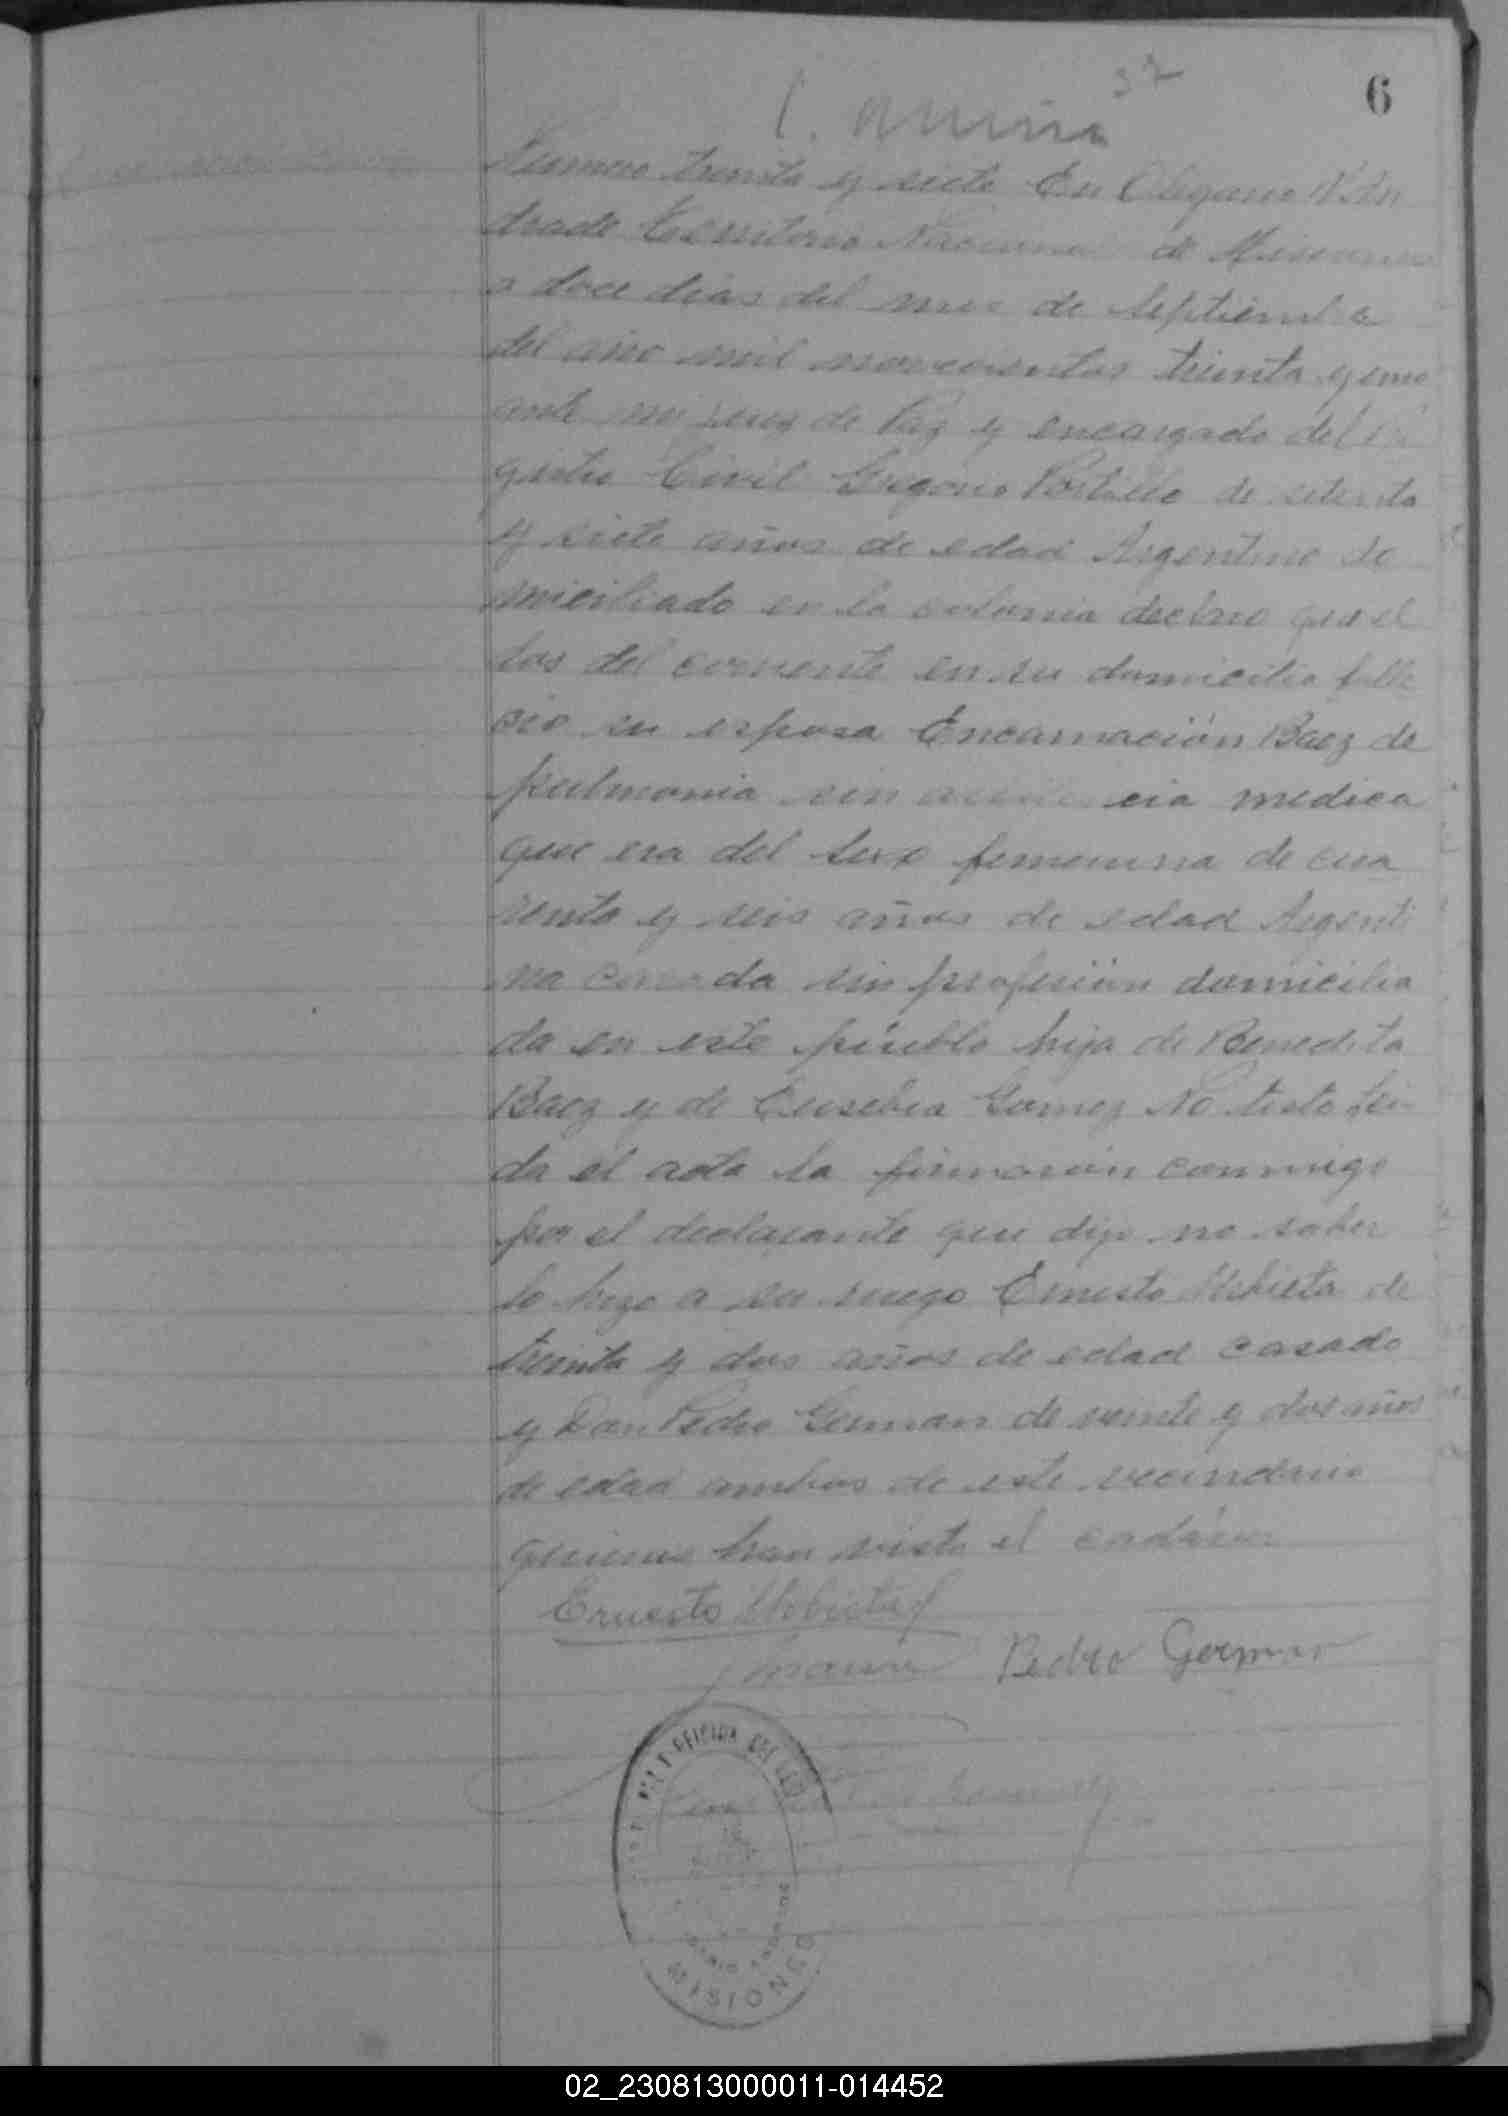 37
6
Numero treinta y siete En Olegario V. An
drade Territorio Nacional de Misiones
a doce dias del mes de Septiembre
del año mil novecientos treinta y uno
ante mi Juez de Paz y encargado del Re
gistro Civil Gregorio Portillo de setenta
y siete años de edad Argentino do
miciliado en la colonia declaro que el
dos del corriente en su domicilio falle
cio su esposa Encarnación Baez de
pulmonia sin asistencia medica
que era del sexo femenina de cua
renta y seis años de edad Argenti
na casada sin profesión domicilia
da en este pueblo hija de Benedita
Baez y de Eusebia Gomez No testo Lei
da el acta la firmaron conmigo
por el declarante que dijo no saber
lo hizo a su ruego Ernesto de
treinta y dos años de edad casado
y Don Pedro German de veinte y dos años
de edad ambos de este vecindario
quienes han visto el cadaver
Ernesto
Pedro German
MISIONES
02_230813000011-014452